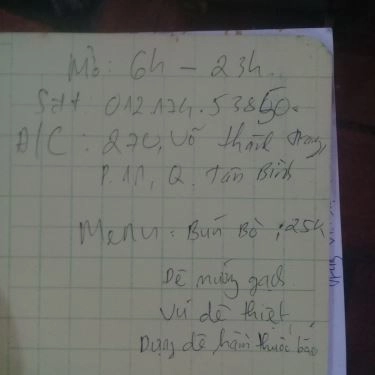 Mở: 6h – 23h.
Sđt 012.174.53850.
Đ/C: 270, Võ Thành Trang,
P.11, Q. Tân Bình
Menu: Bún Bò ; 25k
Dê nướng gạch.
Vú dê thiệt,
Dựng dê hầm thuốc bắc